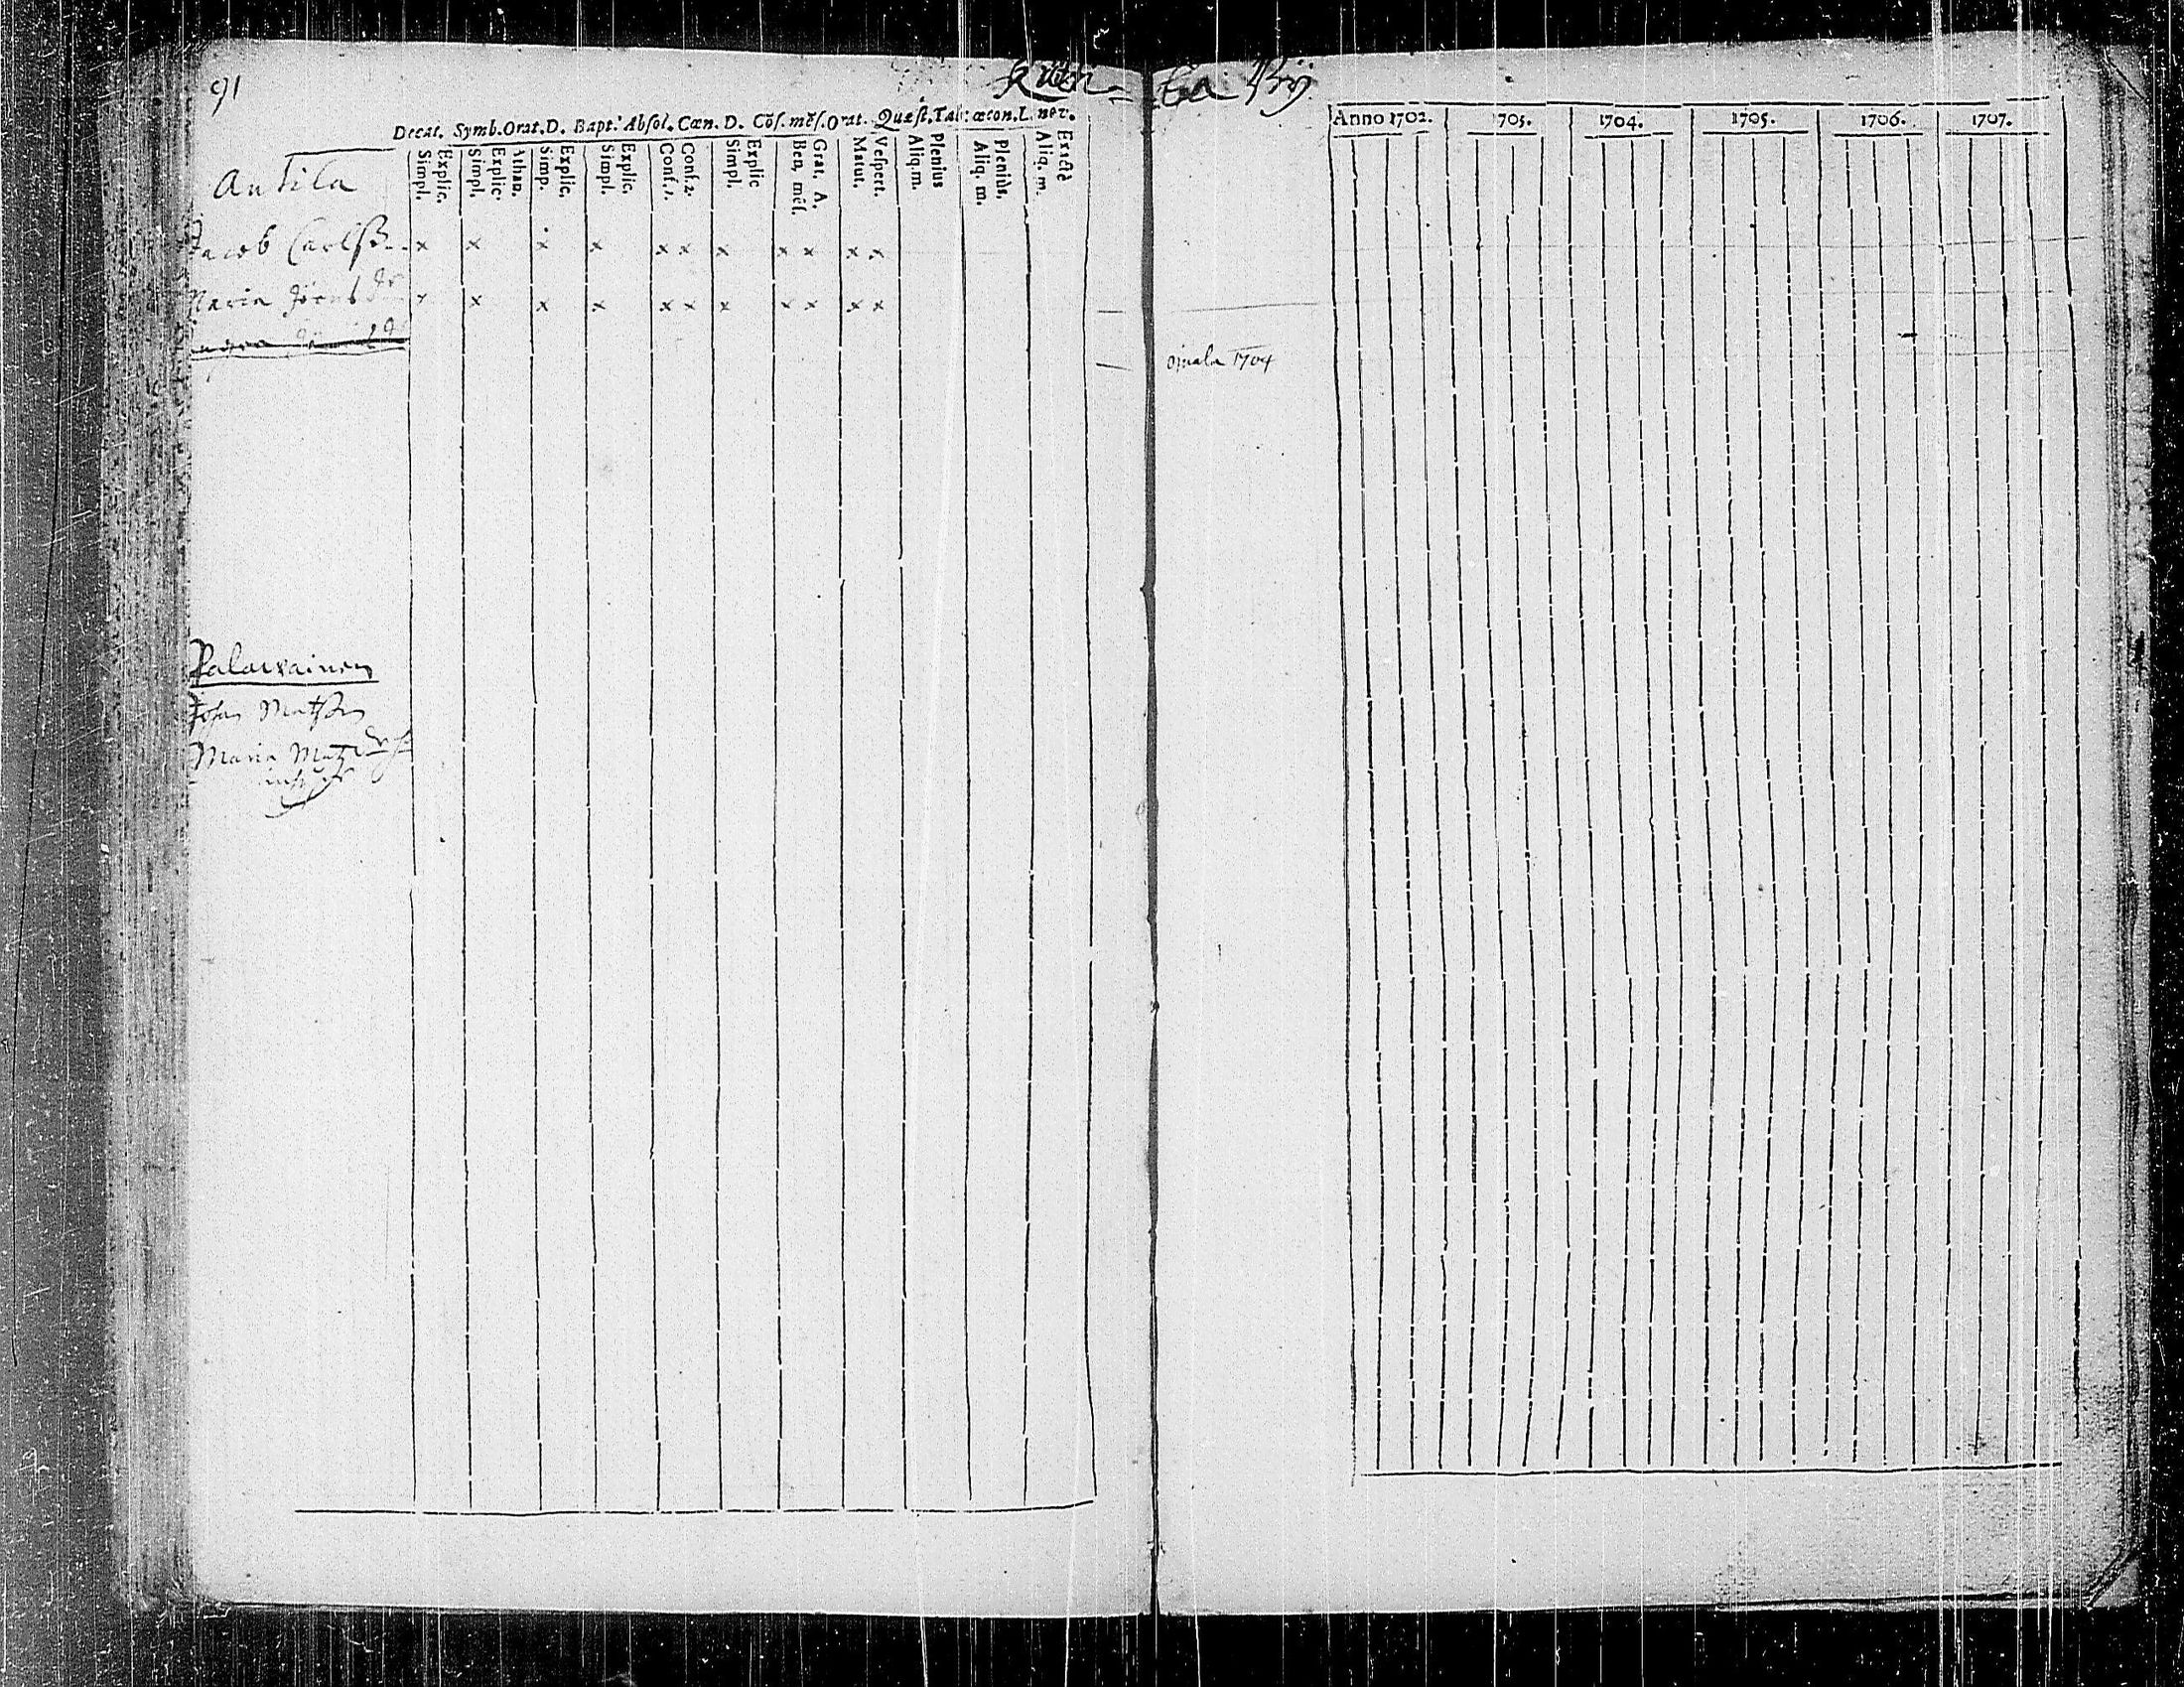 91
Decat. Symb. Orat. D. Bapt. Absol. Cœn. D. Cōf. mēſ. Orat. Quæſt. Tab: œcon. L. ner.
Simpl. Explic. Simpl. Explic. Athan. Simp. Explic. Simpl. Explic. Conf. 1. Conf. 2. Simpl. Explic Ben. mēſ. Grat. A. Matut. Veſpert. Aliq. m. Plenius Aliq. m. Pleniùs. Aliq. m. Exactè
Antila
Jacob Carlſſ
x x x x x x x x x x x
Maria
x x x x x x x x x x x
Palawainen
Johan Matſſon
Maria Matz
By
Anno 1702. 1703. 1704. 1705. 1706. 1707.
ojuala 1704